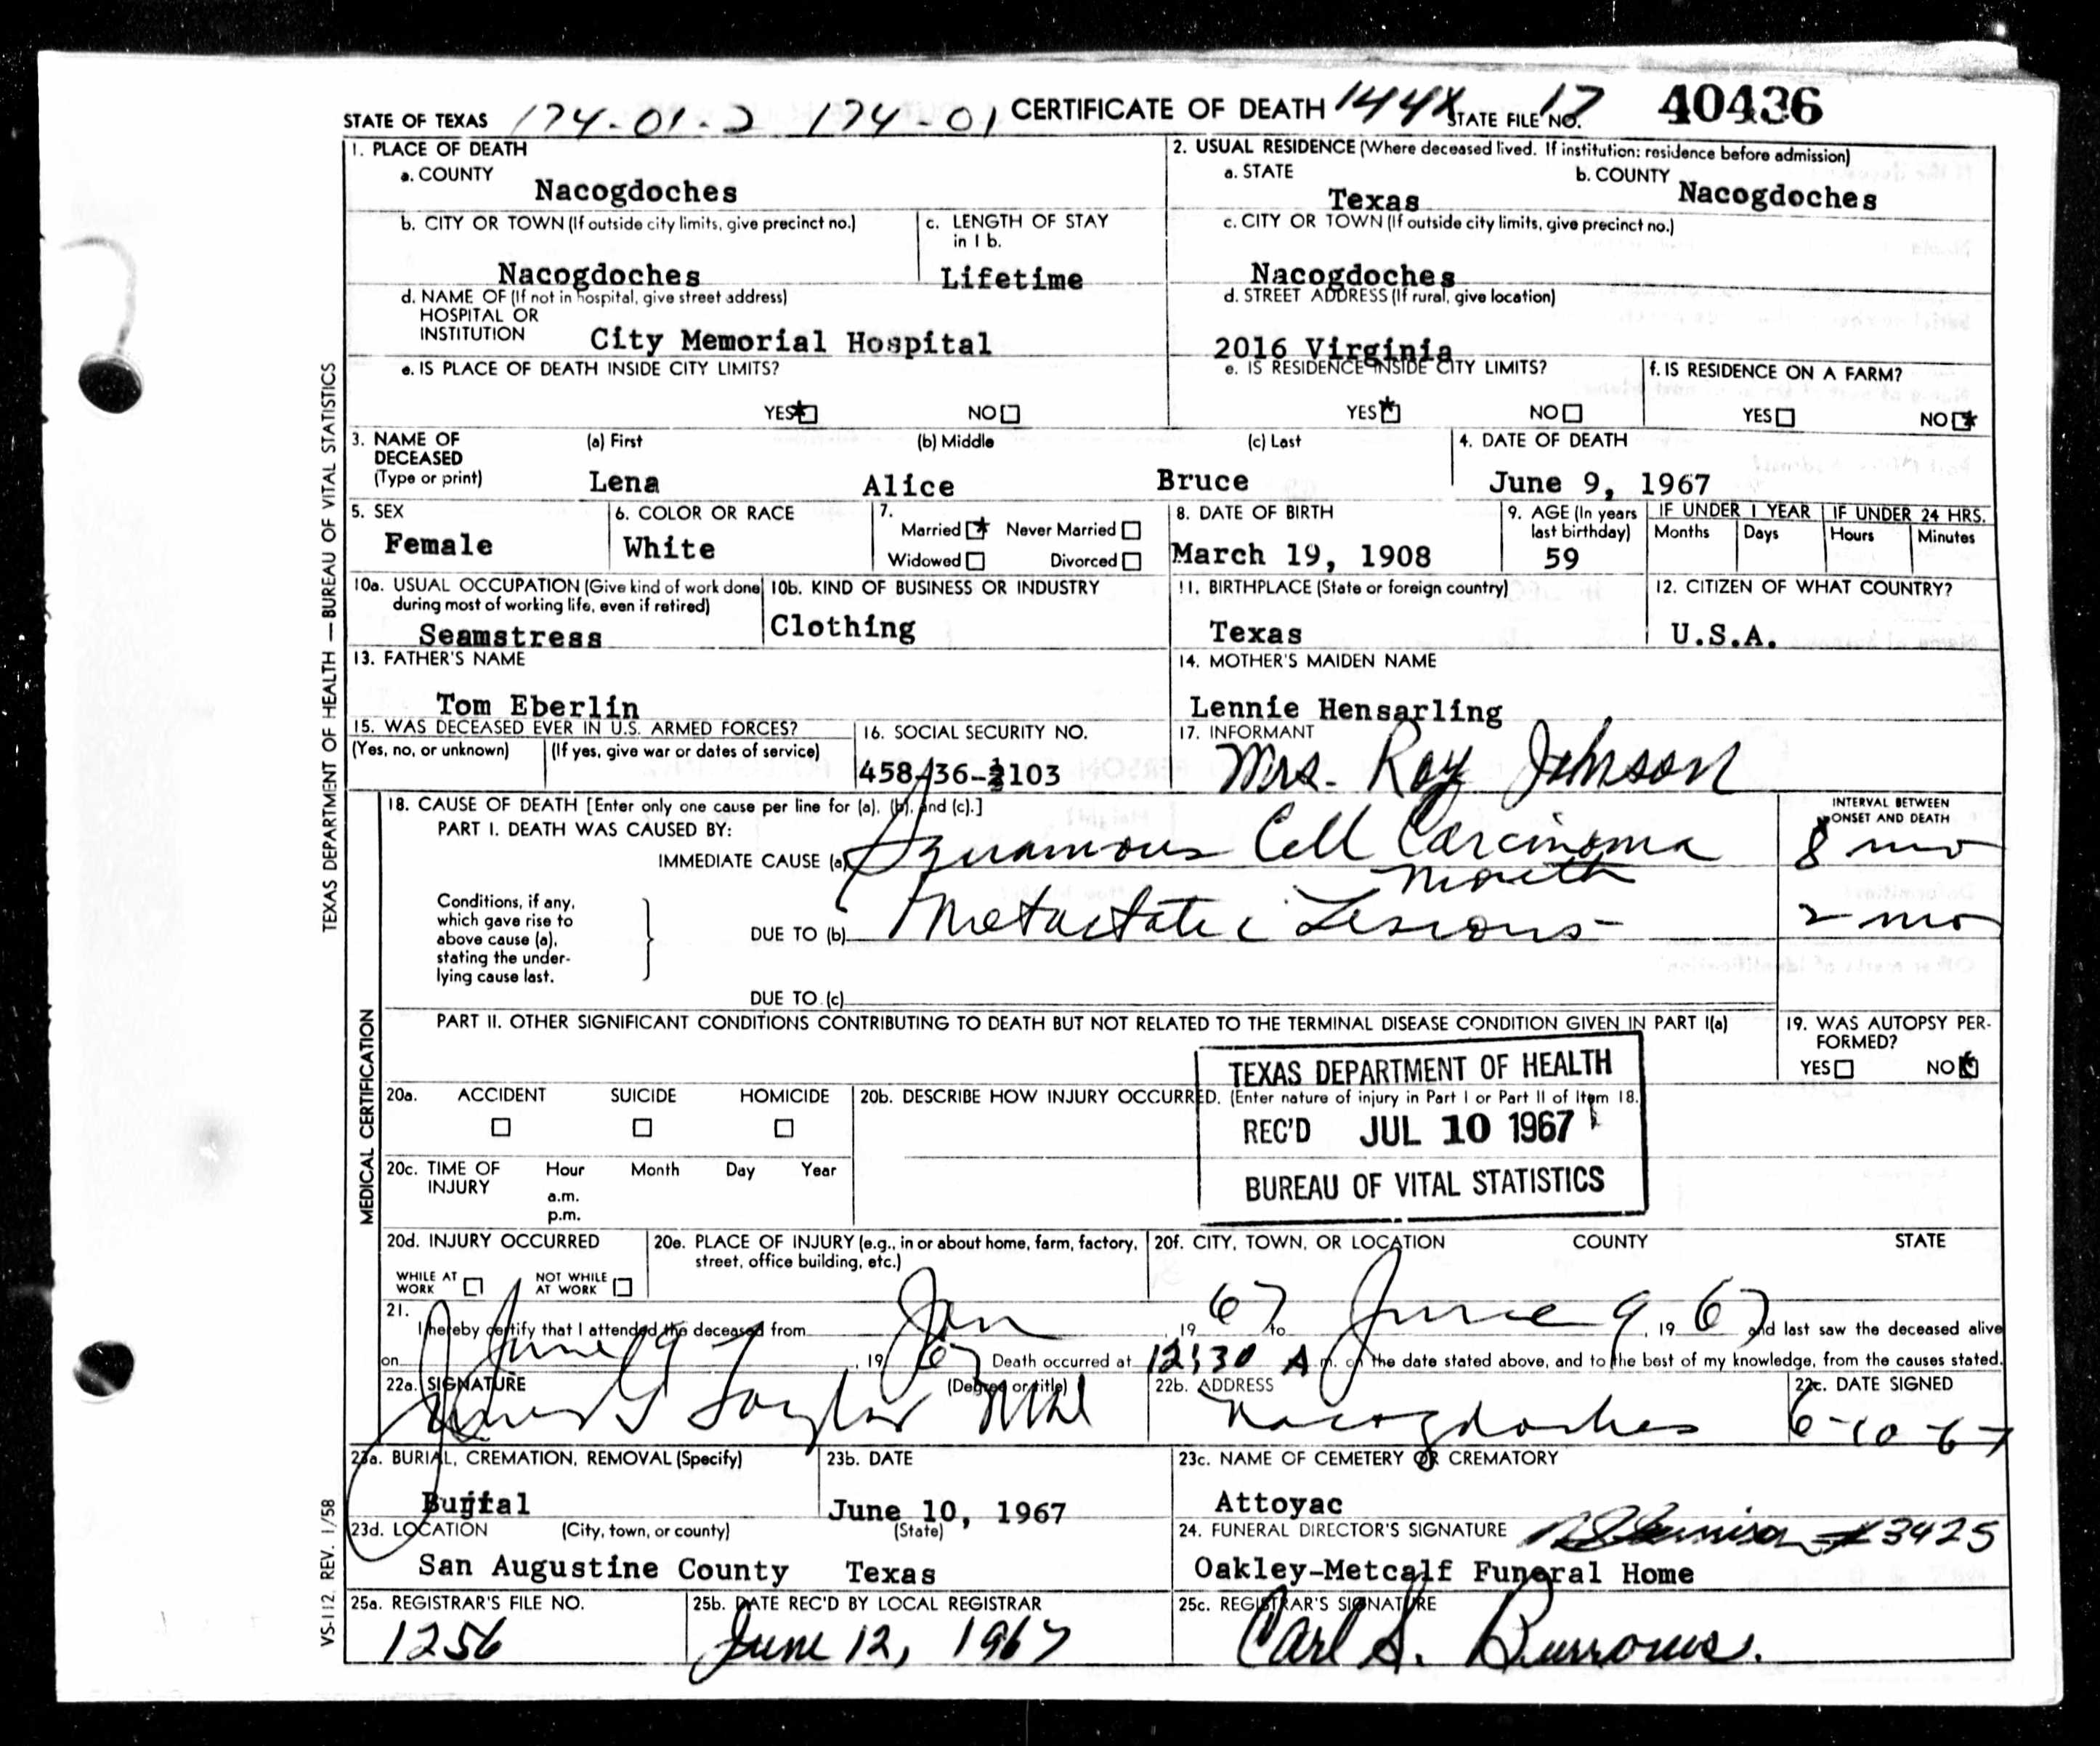 STATE OF TEXAS 174-01-2 174-01 CERTIFICATE OF DEATH 144X STATE FILE NO. 17 40436
1. PLACE OF DEATH
a. COUNTY
Nacogdoches
2. USUAL RESIDENCE (Where deceased lived. If institution: residence before admission)
a. STATE b. COUNTY
Texas Nacogdoches
b. CITY OR TOWN (If outside city limits, give precinct no.)
Nacogdoches
c. LENGTH OF STAY
in 1 b.
Lifetime
c. CITY OR TOWN (If outside city limits, give precinct no.)
Nacogdoches
d. NAME OF (If not in hospital, give street address)
HOSPITAL OR
INSTITUTION City Memorial Hospital
d. STREET ADDRESS (If rural, give location)
2016 Virginia
e. IS PLACE OF DEATH INSIDE CITY LIMITS?
YES * NO
e. IS RESIDENCE INSIDE CITY LIMITS?
YES * NO
f. IS RESIDENCE ON A FARM?
YES NO *
3. NAME OF
DECEASED
(Type or print)
(a) First (b) Middle (c) Last
Lena Alice Bruce
4. DATE OF DEATH
June 9, 1967
5. SEX
Female
6. COLOR OR RACE
White
7.
Married * Never Married
Widowed Divorced
8. DATE OF BIRTH
March 19, 1908
9. AGE (In years
last birthday)
59
IF UNDER 1 YEAR IF UNDER 24 HRS.
Months Days Hours Minutes
10a. USUAL OCCUPATION (Give kind of work done
during most of working life, even if retired)
Seamstress
10b. KIND OF BUSINESS OR INDUSTRY
Clothing
11. BIRTHPLACE (State or foreign country)
Texas
12. CITIZEN OF WHAT COUNTRY?
U.S.A.
13. FATHER'S NAME
Tom Eberlin
14. MOTHER'S MAIDEN NAME
Lennie Hensarling
15. WAS DECEASED EVER IN U.S. ARMED FORCES?
(Yes, no, or unknown) (If yes, give war or dates of service)
16. SOCIAL SECURITY NO.
17. INFORMANT
Mrs. Roy Johnson
18. CAUSE OF DEATH [Enter only one cause per line for (a), (b), and (c).]
PART I. DEATH WAS CAUSED BY:
IMMEDIATE CAUSE (a) Squamous Cell Carcinoma
mouth
INTERVAL BETWEEN
ONSET AND DEATH
8 mo
Conditions, if any,
which gave rise to
above cause (a),
stating the under-
lying cause last.
DUE TO (b) Metastatic Lesions
2 mo
DUE TO (c)
PART II. OTHER SIGNIFICANT CONDITIONS CONTRIBUTING TO DEATH BUT NOT RELATED TO THE TERMINAL DISEASE CONDITION GIVEN IN PART I(a)
19. WAS AUTOPSY PER-
FORMED?
YES NO
TEXAS DEPARTMENT OF HEALTH
REC'D JUL 10 1967
BUREAU OF VITAL STATISTICS
20a. ACCIDENT SUICIDE HOMICIDE
20b. DESCRIBE HOW INJURY OCCURRED. (Enter nature of injury in Part I or Part II of Item 18.
20c. TIME OF
INJURY
Hour Month Day Year
a.m.
p.m.
20d. INJURY OCCURRED
WHILE AT
WORK
NOT WHILE
AT WORK
20e. PLACE OF INJURY (e.g., in or about home, farm, factory,
street, office building, etc.)
20f. CITY, TOWN, OR LOCATION COUNTY STATE
21.
I hereby certify that I attended the deceased from Jan, 19 67 to June 9, 19 67 and last saw the deceased alive
on June 9, 19 67 Death occurred at 12:30 A m. on the date stated above, and to the best of my knowledge, from the causes stated.
22a. SIGNATURE (Degree or title)
Taylor MD
22b. ADDRESS
Nacogdoches
22c. DATE SIGNED
6-10-67
23a. BURIAL, CREMATION, REMOVAL (Specify)
Burial
23b. DATE
June 10, 1967
23c. NAME OF CEMETERY OR CREMATORY
Attoyac
23d. LOCATION (City, town, or county) (State)
San Augustine County Texas
24. FUNERAL DIRECTOR'S SIGNATURE #3425
Oakley-Metcalf Funeral Home
25a. REGISTRAR'S FILE NO.
1256
25b. DATE REC'D BY LOCAL REGISTRAR
June 12, 1967
25c. REGISTRAR'S SIGNATURE
Carl S. Burrows.
TEXAS DEPARTMENT OF HEALTH — BUREAU OF VITAL STATISTICS
MEDICAL CERTIFICATION
VS-112 REV. 1/58